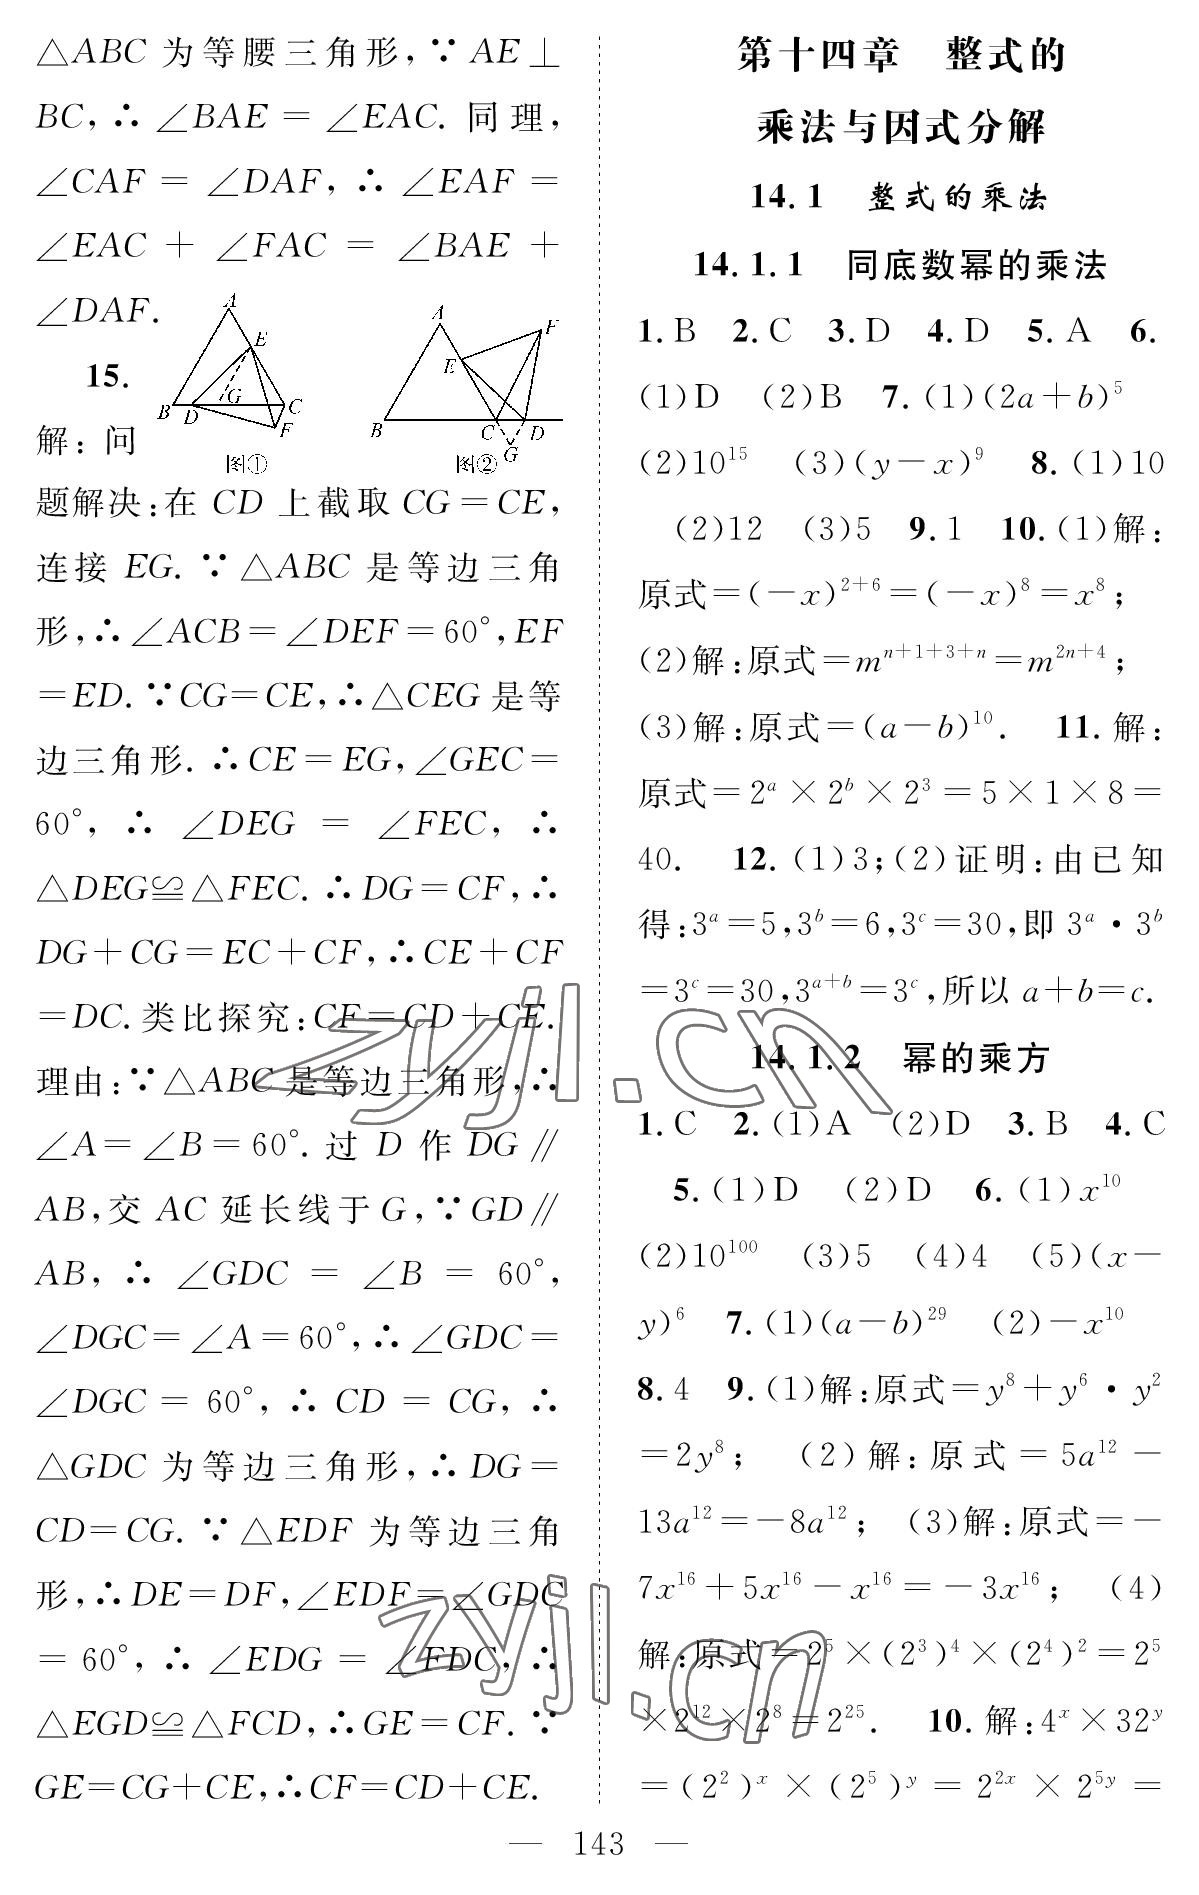 △ABC 为等腰三角形,∵ AE⊥
BC,∴ ∠BAE = ∠EAC. 同理,
∠CAF = ∠DAF, ∴ ∠EAF =
∠EAC + ∠FAC = ∠BAE +
∠DAF.
15.
A
E
G
B
D
C
F
图①
A
F
E
B
C
D
G
图②
解: 问
题解决:在 CD 上截取 CG=CE,
连接 EG. ∵ △ABC 是等边三角
形,∴∠ACB=∠DEF=60°,EF
=ED. ∵CG=CE,∴△CEG 是等
边三角形. ∴CE=EG,∠GEC=
60°, ∴ ∠DEG = ∠FEC, ∴
△DEG≌△FEC. ∴DG=CF,∴
DG+CG=EC+CF,∴CE+CF
=DC. 类比探究:CF=CD+CE.
理由:∵△ABC 是等边三角形,∴
∠A=∠B=60°. 过 D 作 DG∥
AB,交 AC 延长线于 G,∵GD∥
AB, ∴ ∠GDC = ∠B = 60°,
∠DGC=∠A=60°,∴∠GDC=
∠DGC = 60°, ∴ CD = CG, ∴
△GDC 为等边三角形,∴DG=
CD=CG. ∵ △EDF 为等边三角
形,∴DE=DF,∠EDF=∠GDC
= 60°, ∴ ∠EDG = ∠FDC, ∴
△EGD≌△FCD,∴GE=CF. ∵
GE=CG+CE,∴CF=CD+CE.
第十四章 整式的
乘法与因式分解
14.1 整式的乘法
14.1.1 同底数幂的乘法
1. B 2. C 3. D 4. D 5. A 6.
(1)D (2)B 7. (1)(2a+b)⁵
(2)10¹⁵ (3)(y-x)⁹ 8. (1)10
(2)12 (3)5 9. 1 10. (1)解:
原式=(-x)²⁺⁶=(-x)⁸=x⁸;
(2)解:原式=m^{n+1+3+n}=m^{2n+4};
(3)解:原式=(a-b)¹⁰. 11. 解:
原式=2^a×2^b×2³=5×1×8=
40. 12. (1)3;(2)证明:由已知
得:3^a=5,3^b=6,3^c=30,即 3^a·3^b
=3^c=30,3^{a+b}=3^c,所以 a+b=c.
14.1.2 幂的乘方
1. C 2. (1)A (2)D 3. B 4. C
5. (1)D (2)D 6. (1)x¹⁰
(2)10¹⁰⁰ (3)5 (4)4 (5)(x-
y)⁶ 7. (1)(a-b)²⁹ (2)-x¹⁰
8. 4 9. (1)解:原式=y⁸+y⁶·y²
=2y⁸; (2)解:原式=5a¹²-
13a¹²=-8a¹²; (3)解:原式=-
7x¹⁶+5x¹⁶-x¹⁶=-3x¹⁶; (4)
解:原式=2⁵×(2³)⁴×(2⁴)²=2⁵
×2¹²×2⁸=2²⁵. 10. 解:4^x×32^y
=(2²)^x×(2⁵)^y=2^{2x}×2^{5y}=
— 143 —
zyjl.cn
zyjl.cn